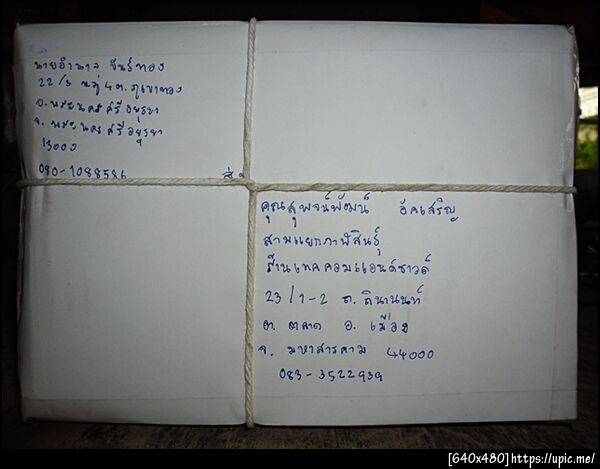 นายอำนาจ จันร์ทอง
22/5 หมู่ 4 ต.ภูเขาทอง
อ.พระนครศรีอยุธยา
จ.พระนครศรีอยุธยา
13000
080-1088586
ส่ง
คุณสุพจน์พัฒน์ อัคเสริญ
สามแยกกาฬสินธุ์
ร้านเทคคอมแอนด์ซาวด์
23/1-2 ถ. ถีนานนท์
ต. ตลาด อ. เมือง
จ. มหาสารคาม 44000
083-3522939
[640x480]https://upic.me/